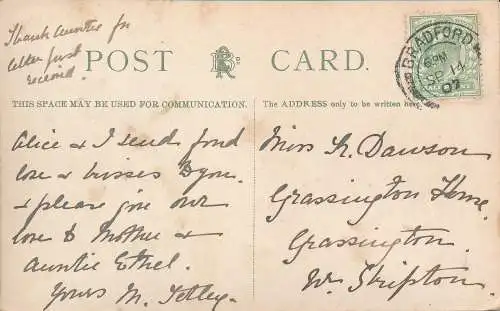 Thank Auntie for
letter just
received.
POST CARD.
THIS SPACE MAY BE USED FOR COMMUNICATION.
The ADDRESS only to be written here.
BRADFORD
6 PM
SP 14
07
Alice & I send fond
love & kisses to you.
& please give our
love to Mother &
Auntie Ethel.
Yours M. Tetley.
Miss K. Dawson
Grassington Home.
Grassington.
Nr. Skipton.